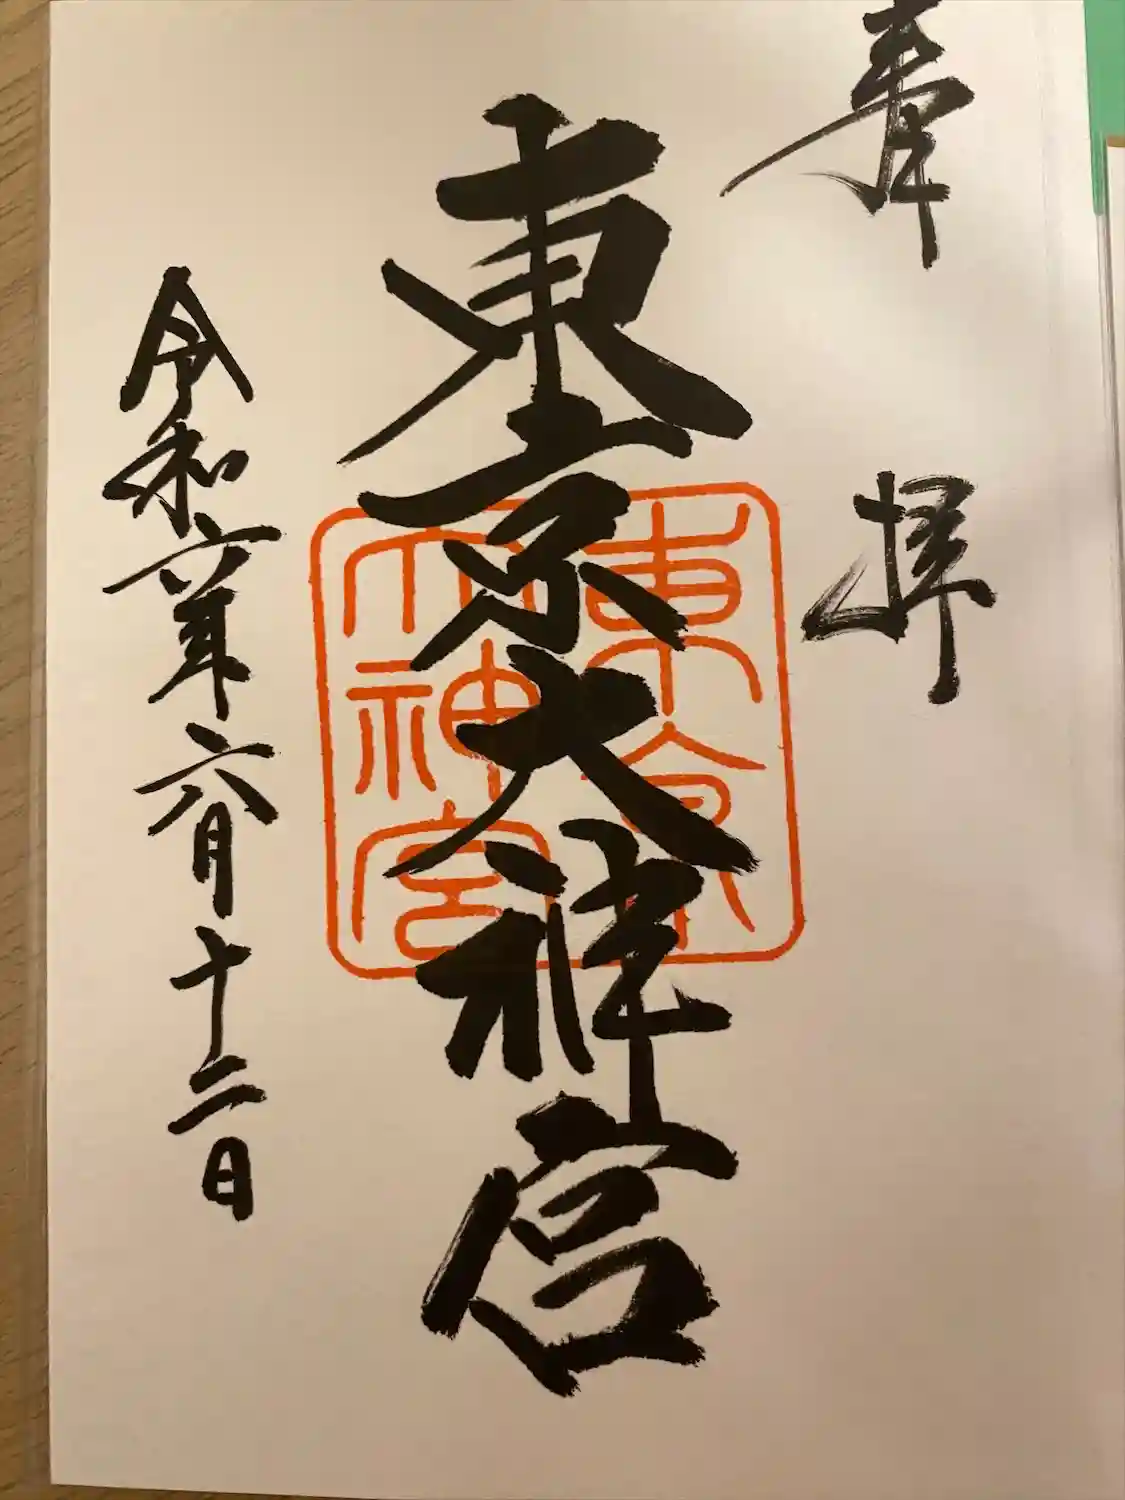 奉拝
東京大神宮
東京
大神宮
令和六年六月十二日